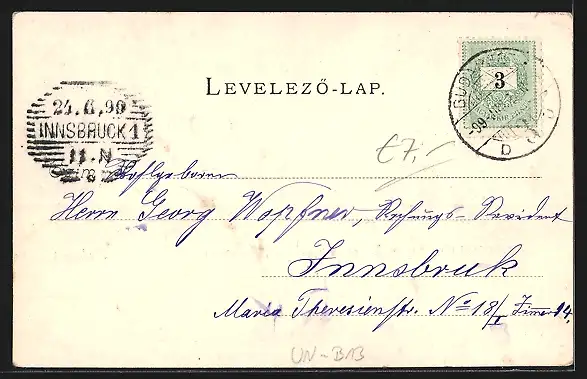 LEVELEZŐ-LAP.
3
BUD
99
D
24.6.99
INNSBRUCK 1
11.N
€7,-
Hoflgeboren
Herrn Georg Wopfner, Rechngs-Revident
Innsbruk
Maria Theresienstr. No 18/I Zimmer 14.
UN-B13